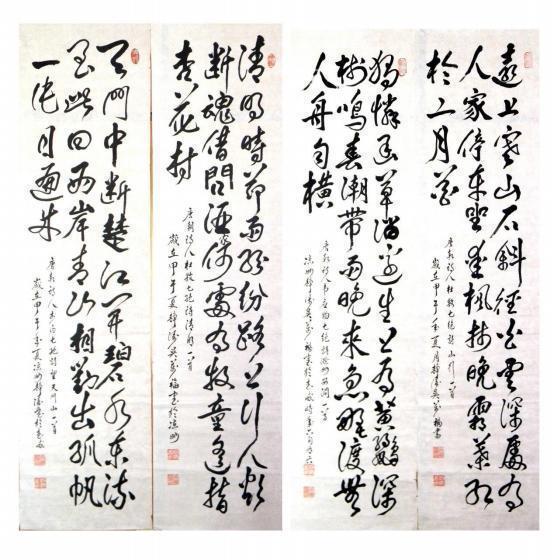 遠上寒山石斜徑白雲深處有
人家停車坐愛楓林晚霜葉紅
於二月花
唐朝詩人杜牧七絕詩山行一首
歲在甲午年夏月靜濤吳萬福書
獨憐幽草澗邊生上有黃鸝深
樹鳴春潮帶雨晚來急野渡無
人舟自橫
唐朝詩人韋應物七絕詩滁州西澗一首
涼州靜濤吳萬福書於時年六旬有六
清明時節雨紛紛路上行人欲
斷魂借問酒家何處有牧童遙指
杏花村
唐朝詩人杜牧七絕詩清明一首
歲在甲午夏靜濤吳萬福書於涼州
天門中斷楚江開碧水東流
至此回兩岸青山相對出孤帆
一片日邊來
唐朝詩人李白七絕詩望天門山一首
歲在甲午年夏涼州靜濤書於